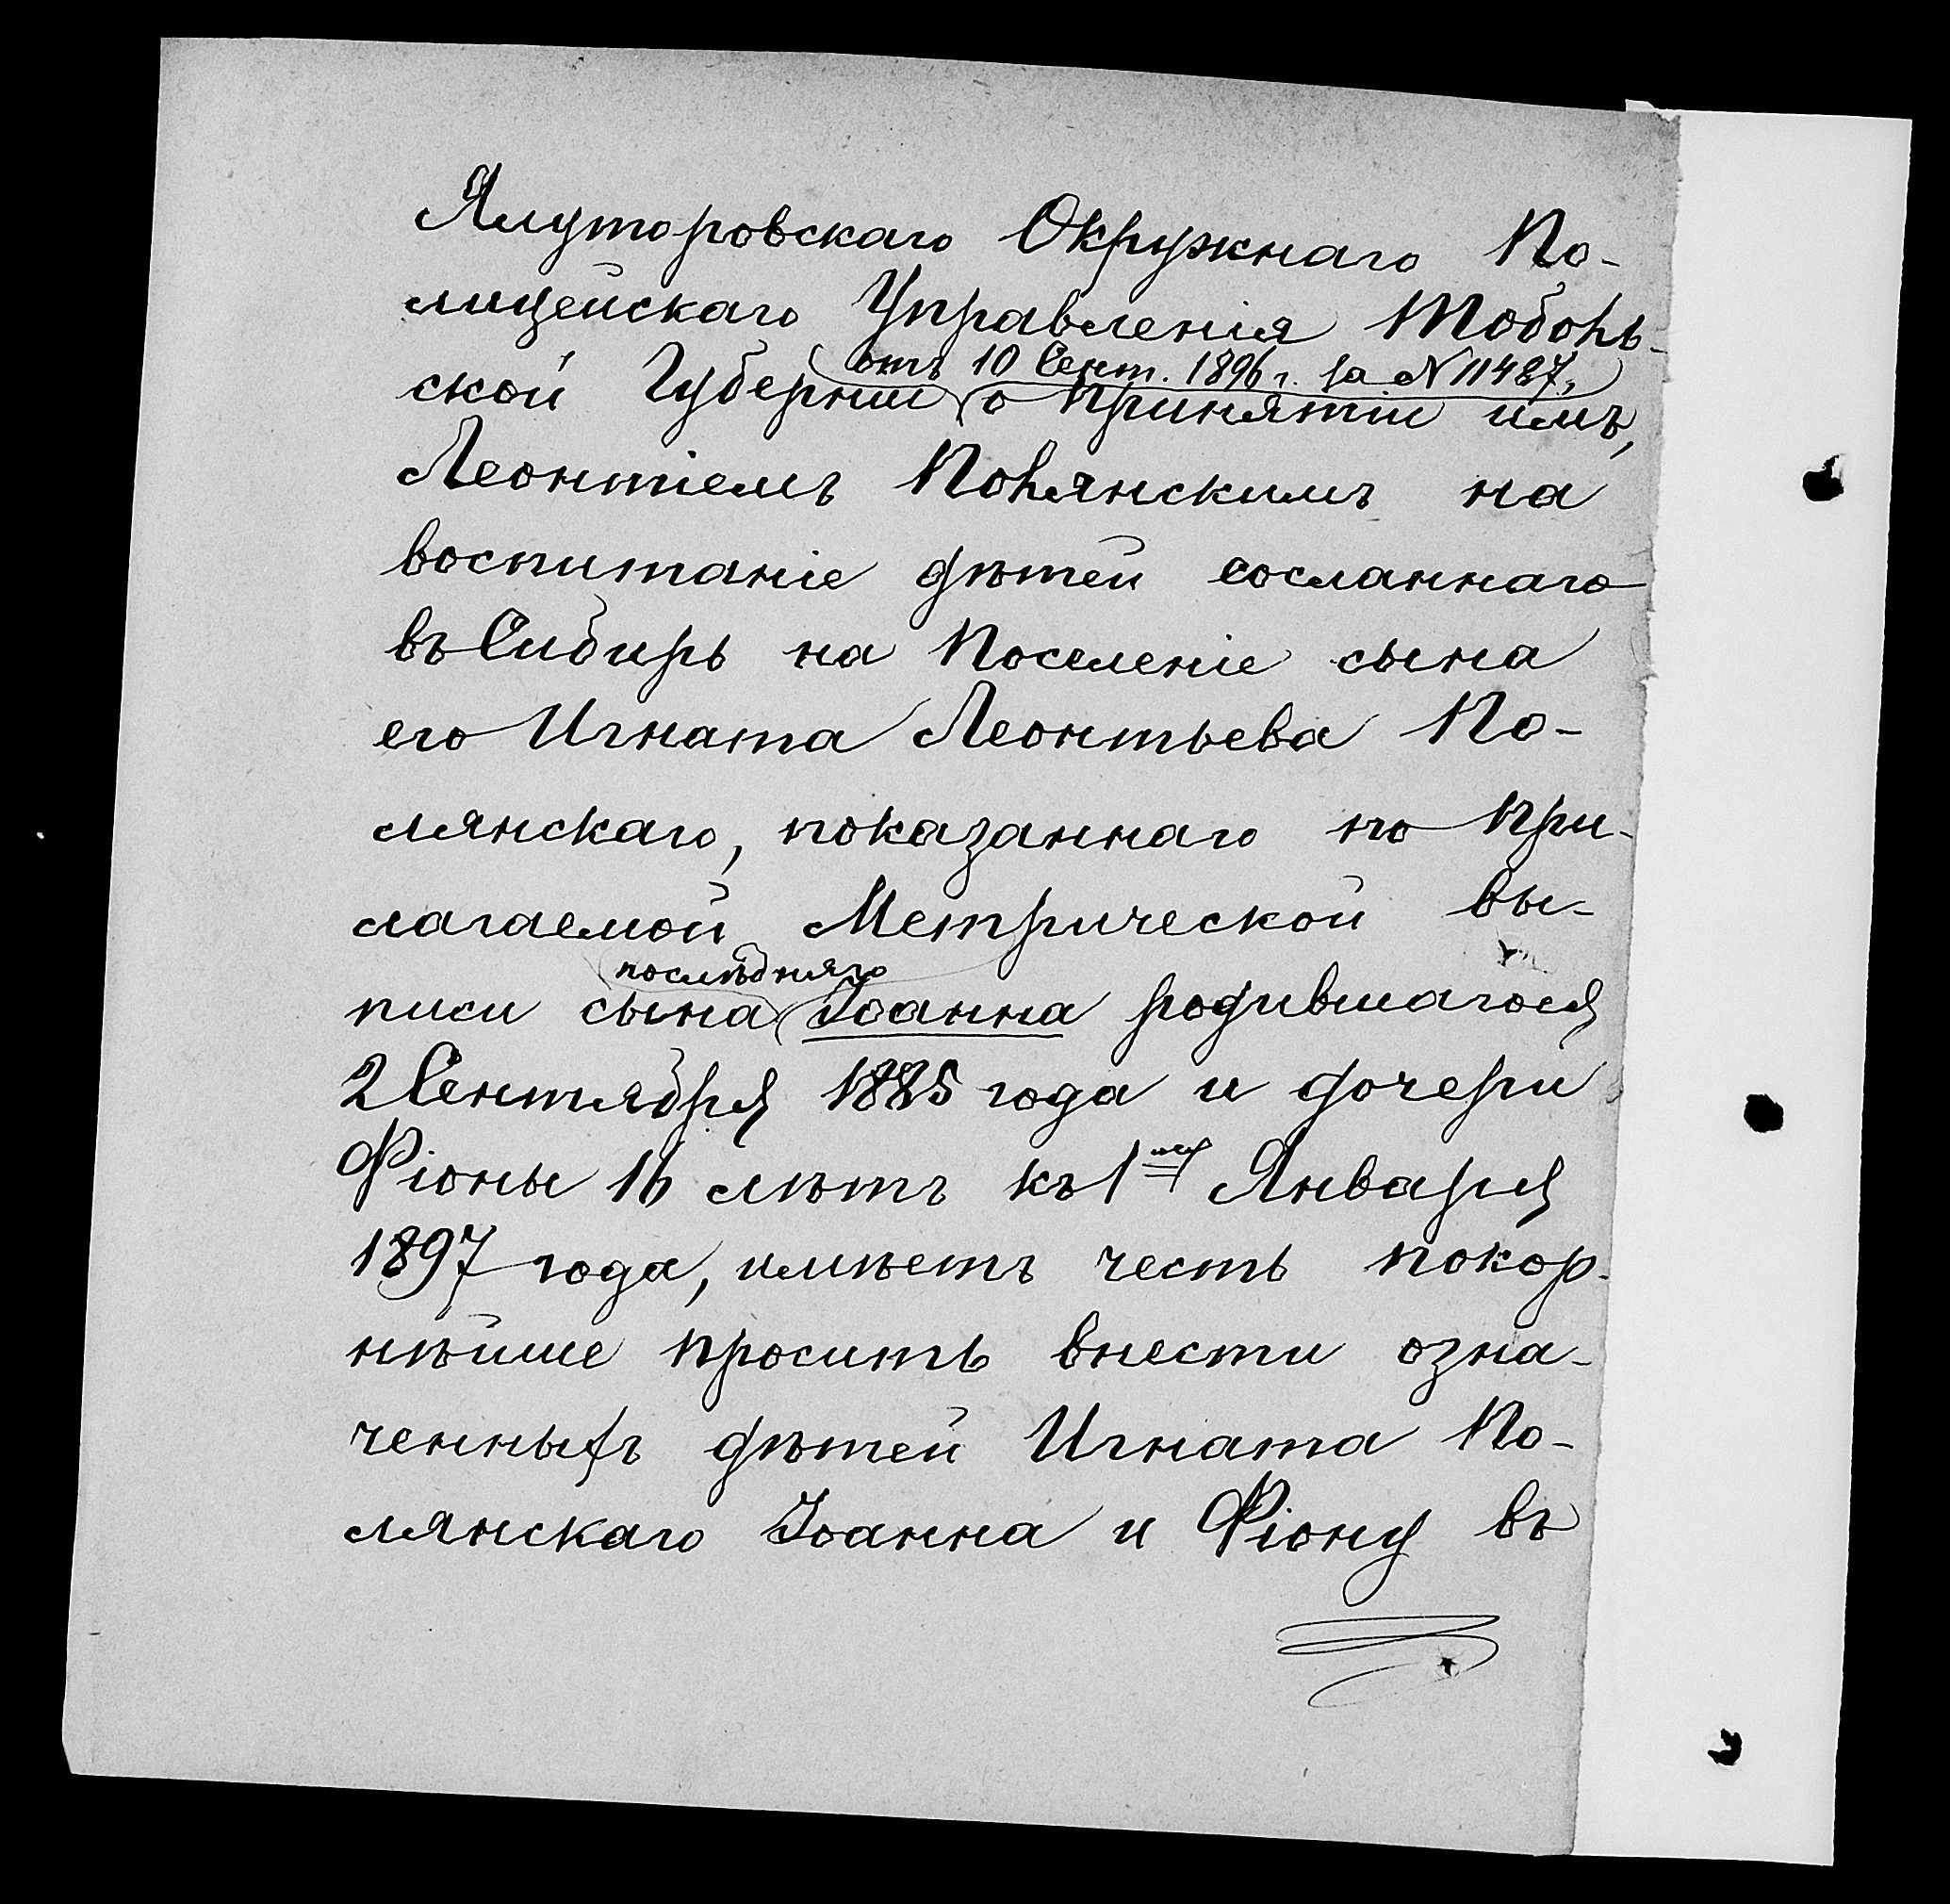 Ялуторовскаго Окружнаго По-
лицейскаго Управленія Тоболь-
отъ 10 Сент. 1896 г. за № 11487,
ской Губерніи о принятіи имъ,
Леонтіемъ Полянскимъ на
воспитаніе дѣтей сосланнаго
въ Сибирь на поселеніе сына
его Игната Леонтьева По-
лянскаго, показаннаго по при-
лагаемой Метрической вы-
послѣдняго
писи сына Іоанна родившагося
2 Сентября 1885 года и дочери
Фіоны 16 лѣтъ къ 1му Января
1897 года, имѣетъ честь покор-
нѣйше просить внести озна-
ченныхъ дѣтей Игната По-
лянскаго Іоанна и Фіону въ